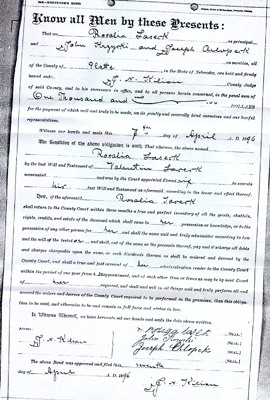 Know all Men by these Presents:
That we Rosalia as principal,
and John and Joseph as sureties, all
of the County of Platte in the State of Nebraska, are held and firmly
bound unto J. N. Kilian County Judge
of said County, and to his successors in office, and to all persons herein concerned, in the penal sum of
One Thousand and DOLLARS
for the payment of which well and truly to be made, we do jointly and severally bind ourselves and our legal representatives.
Witness our hands and seals this 7th day of April A. D. 1896
The Condition of the above obligation is such, That whereas, the above named
Rosalia
by the Last Will and Testament of Valentin
nominated and was by the Court appointed Execu to execute
his last Will and Testament as aforesaid according to the tenor and effect thereof.
Now, if the aforesaid Rosalia
shall return to the County Court within three months a true and perfect inventory of all the goods, chattels,
rights, credits, and estate of the deceased which shall come to her possession or knowledge, or to the
possession of any other person for her and shall the same well and truly administer according to law
and the will of the testator, and shall, out of the same or the proceeds thereof, pay and discharge all debts
and charges chargeable upon the same, or such dividends thereon as shall be ordered and decreed by the
County Court, and shall a true and just account of her administration render to the County Court
within the period of one year from appointment, and at such other time or times as may be by said Court
of her required, and shall well in all things well and truly perform all and
several the orders and decrees of the County Court required to be performed in the premises, then this obliga-
tion to be void, and otherwise to be and remain in full force and virtue in law.
In Witness Whereof, we have hereunto set our hands and seals the date above written.
Attest:
[SEAL]
J. N. Kilian John [SEAL]
Joseph [SEAL]
[SEAL]
The above Bond was approved and filed this seventh
day of April A. D. 1896
J. N. Kilian